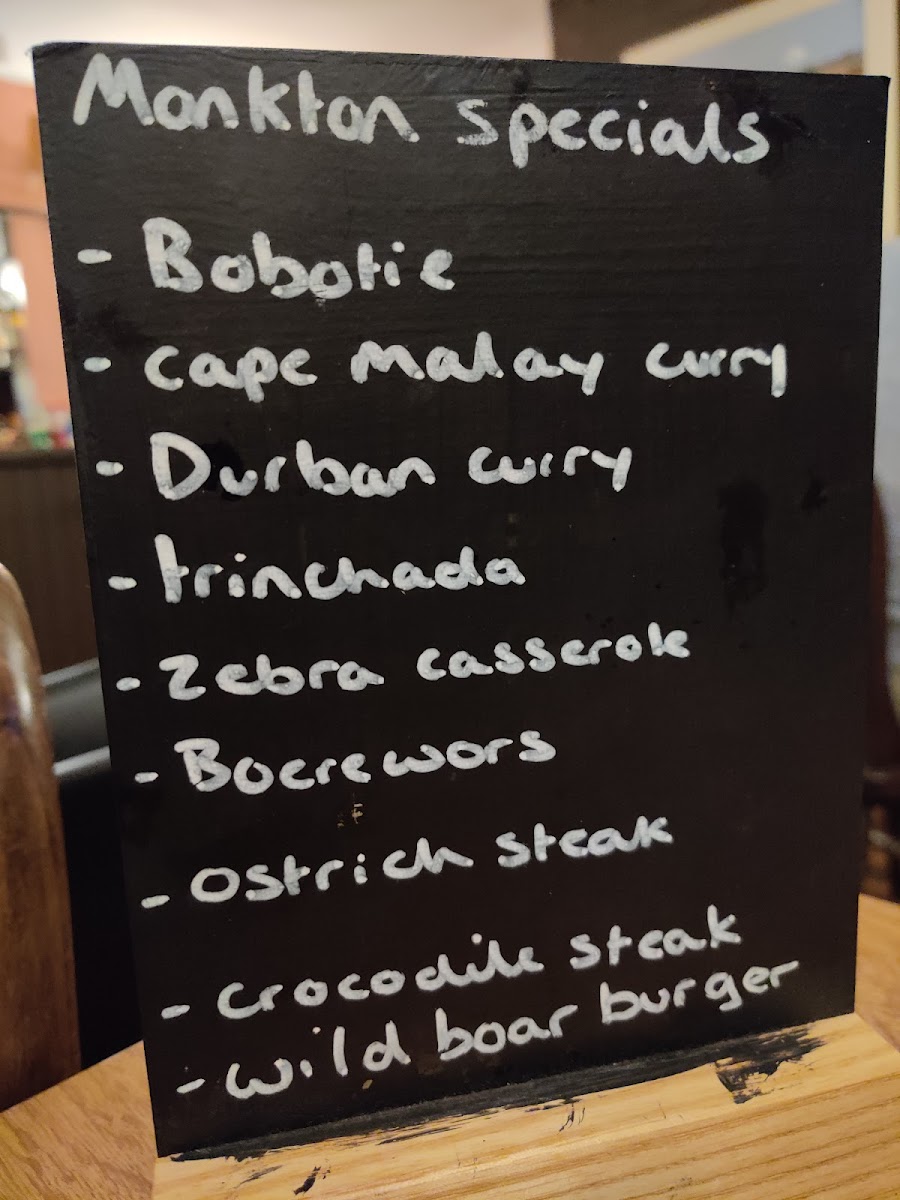 Monkton specials
- Bobotie
- cape malay curry
- Durban curry
- trinchada
- Zebra casserole
- Boerewors
- Ostrich steak
- crocodile steak
- wild boar burger